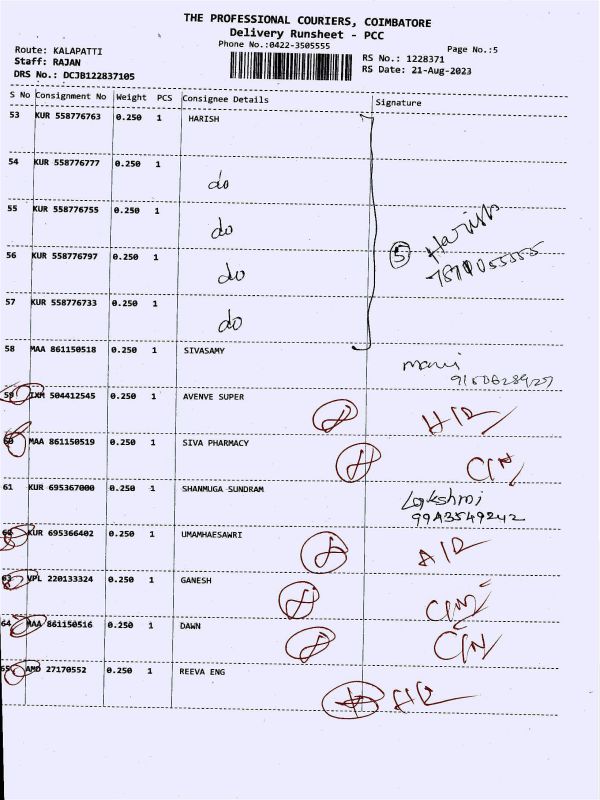 THE PROFESSIONAL COURIERS, COIMBATORE
Delivery Runsheet - PCC
Phone No.:0422-3505555
Page No.:5
Route: KALAPATTI
Staff: RAJAN
DRS No.: DCJB122837105
RS No.: 1228371
RS Date: 21-Aug-2023
S No Consignment No Weight PCS Consignee Details Signature
53 KUR 558776763 0.250 1 HARISH
54 KUR 558776777 0.250 1 do
55 KUR 558776755 0.250 1 do
5 Harish
56 KUR 558776797 0.250 1 do
57 KUR 558776733 0.250 1 do
58 MAA 861150518 0.250 1 SIVASAMY
mani
59 IXM 504412545 0.250 1 AVENVE SUPER
60 MAA 861150519 0.250 1 SIVA PHARMACY
61 KUR 695367000 0.250 1 SHANMUGA SUNDRAM
Lakshmi
9943549242
KUR 695366402 0.250 1 UMAMHAESAWRI
63 VPL 220133324 0.250 1 GANESH
64 MAA 861150516 0.250 1 DAWN
65 AMD 27170552 0.250 1 REEVA ENG